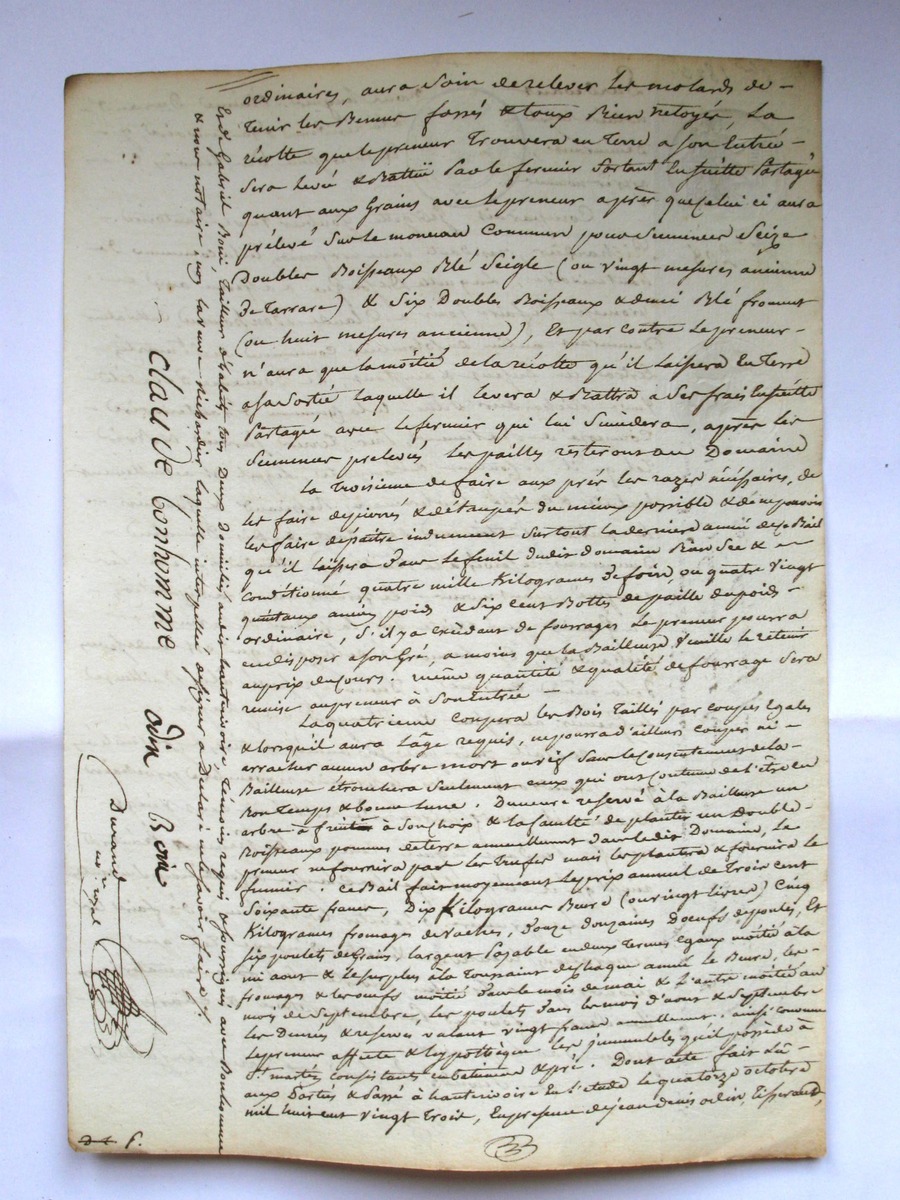 ordinaires, aura soin de relever les motards de
tenir les Bennes fossés & toux Bien netoyés, La
récolte que le preneur Trouvera en Terre a son Entrée
sera Levé & Battüe Par le fermier Sortant Ensuitte Partagé
quant aux Grains avec le preneur après que Celui ci aura
prélevé Sur le monceau Commun pour Semences Seize
Doubles Boisseaux Blé Seigle (ou vingt mesures ancienne
De Tarrare) & Six Doubles Boisseaux & demi Blé froment
(ou huit mesures ancienne), Et par contre Le preneur
n'aura que la môitié de la récolte qu'il Laissera En Terre
a sa Sortié Laquelle il Levera & Battra a Ses frais Ensuitte
Partagée avec le fermier qui lui Suiédera, après les
Semences prelevées Les pailles resteront au Domaine
La Troisieme de faire aux prés les razes nécéssaires, de
les faire dépierrés & détaupés du mieux possible & de ne pouvoir
les faire dépaitre indument Surtout la derniere année de ce Bail
qu'il laissera dans le feuil dudit domaine Bien Sec &
conditionné quatre mille Kilogrames de foin ou quatre vingt
quintaux ancien poids & Six Cent Bottes de paille du poids
ordinaire, S'il y a excédant de fourrages Le preneur pourra
en disposer a son Gré, a moins que la Bailleuse Veuille le retenir
au prix du cours. même quantité & qualité de fourrage Sera
remise au preneur à Son Entrée
La quatrieme Coupera les Bois Taillés par coupes Egales
& lorsquil aura L'âge requis, ne pourra d'ailleurs couper ni
arracher aucun arbre mort ou vif Sans le consentement de la
Bailleuse étronchera Seulement ceux qui ont Coutume de l'être en
Bon Temps & bonne Lune. Demeure reservé à la Bailleuse un
arbre à fruit à Son Choix & la faculté de planter un Double
Boisseaux pommes de terre annuellement dans ledit Domaine, Le
preneur ne fournira pas les Trufes mais les plantera & fournira le
fumier. Ce Bail fait moyennant Le prix annuel de Trois cent
Soixante francs, Dix Kilogrames Bure (ou vingt livres) Cinq
Kilogrames fromages de vaches, Douze douzaines D'oeufs de poules, Et
six poulets de Grains, Largent Payable en deux Termes egaux moitié à la
mi aout & Le surplus à la Toussaint de chaque année Le Bure, les
fromages & les oeufs moitié dans le mois de mai & L'autre môitié au
mois de Septembre, Les poulets dans les mois d'aout & Septembre
Les Denrés & reserves valant vingt francs annuellement. ainsi convenu
Le preneur affecte & hypothèque les immeubles qu'il possède à
St. martés consistants en batiments & pré. Dont acte fait Lû
aux Partés & Passé à hauterivoire En l'étude le quatorze octobre
mil huit cent vingt Trois, En presence de jean denis odin, tisserand,
Et de Gabriel Boni, tailleur d'habits tous Deux domiciliés audit hauterivoire, témoins requis & soussignés avec Bonhomme
& nous notaire, non la veuve Richardier laquelle interpellée de signer a Déclaré ne le savoir faire ./.
Claude bonhomme
odin
Boni
Durand
nre. royal